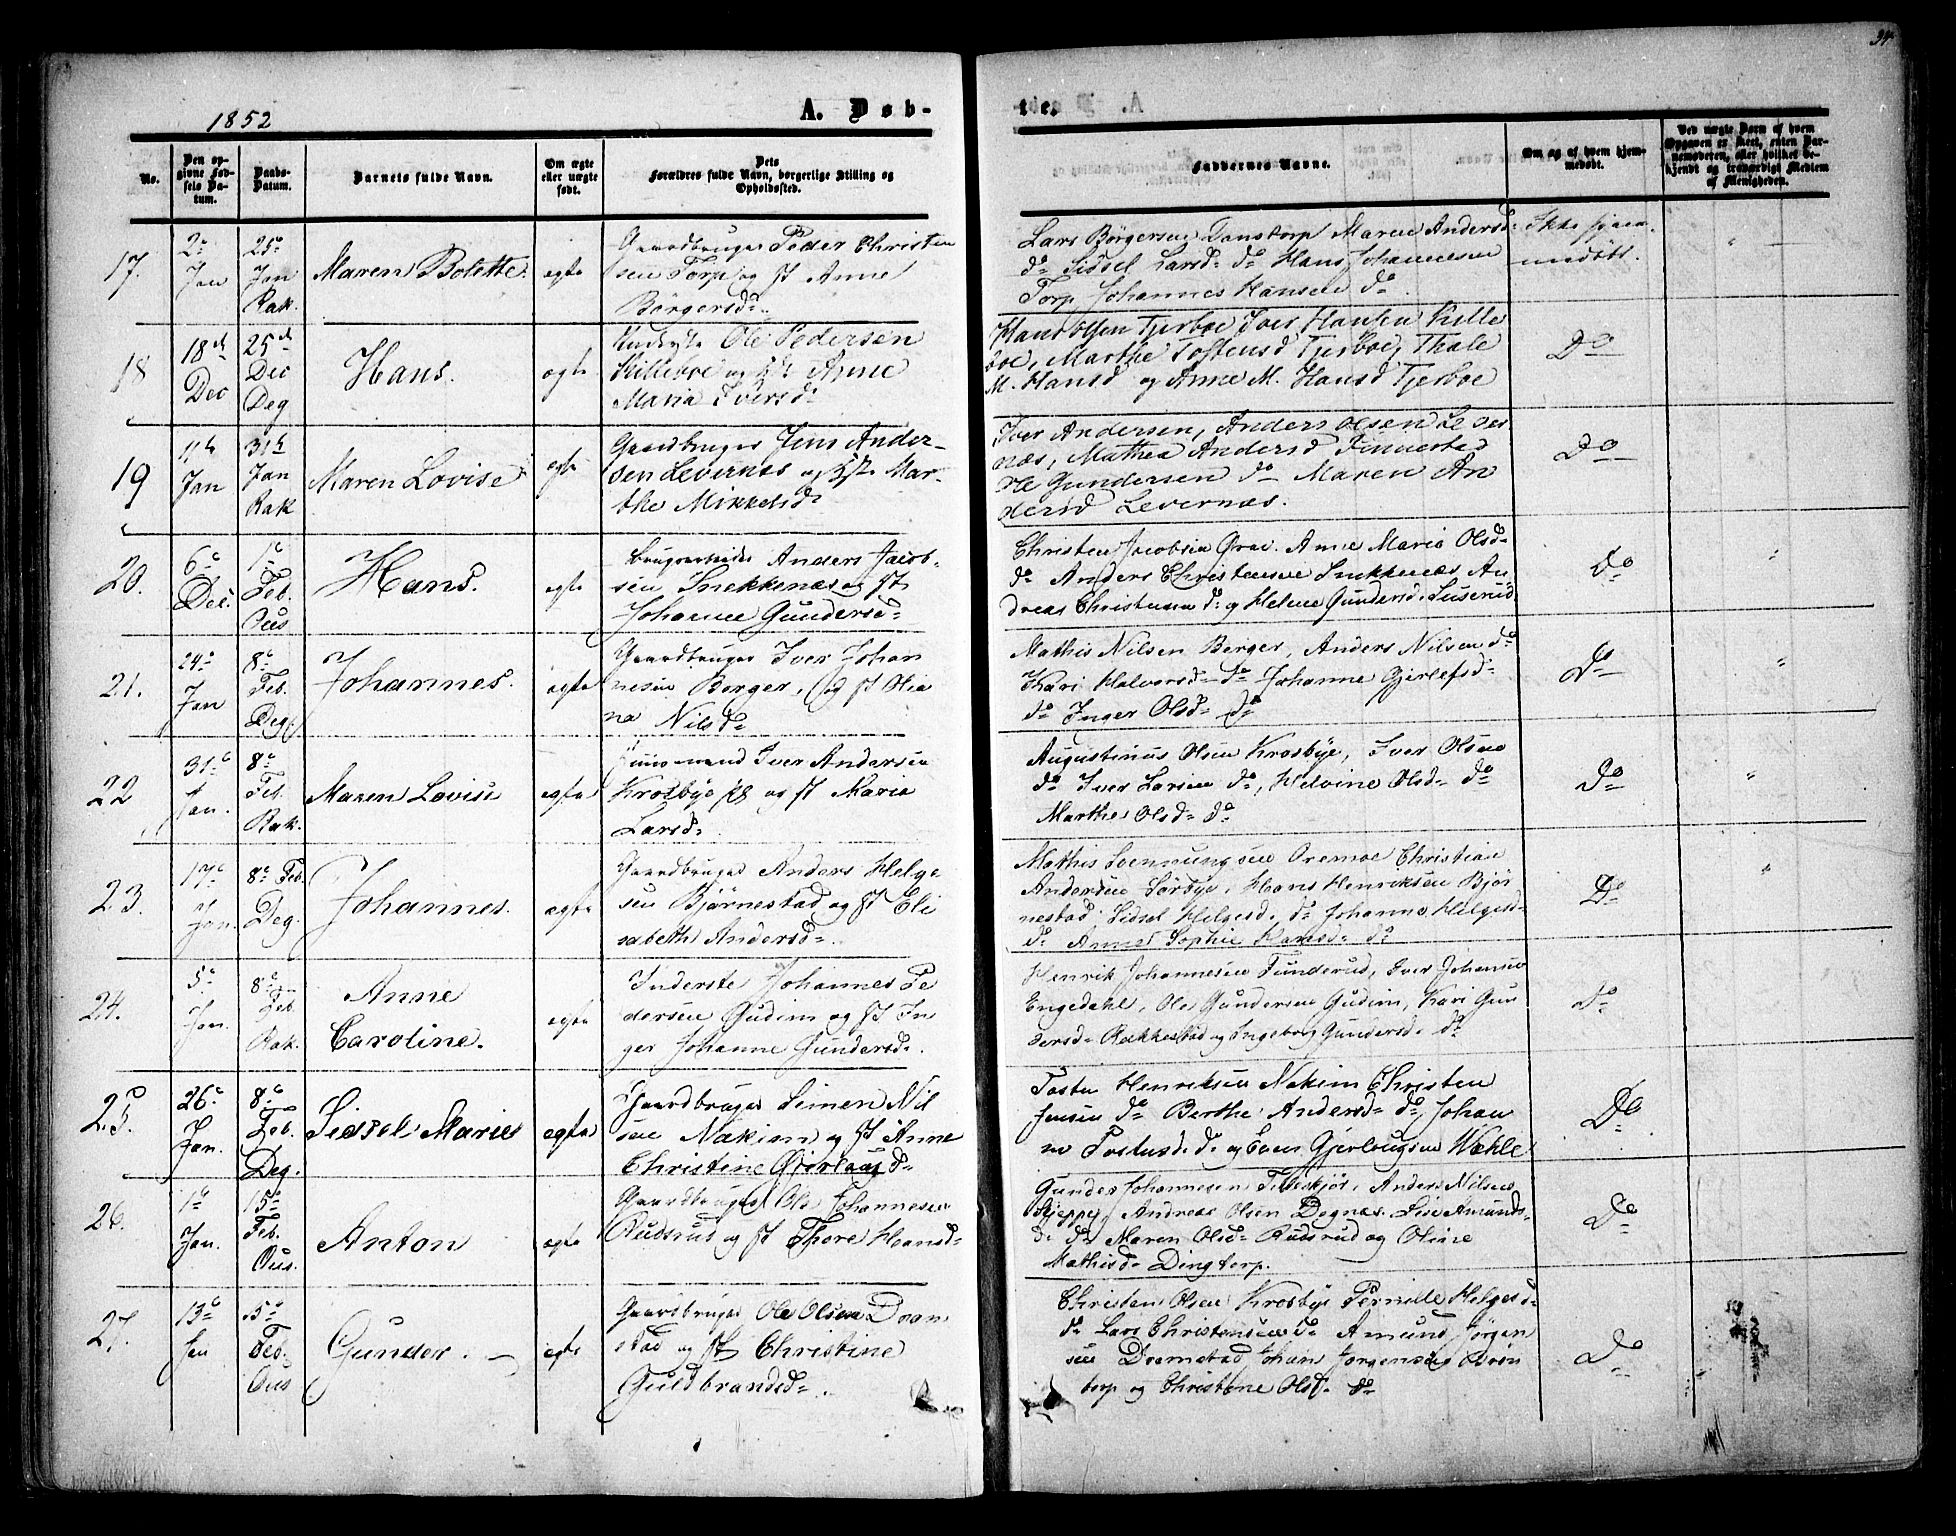 34
1852
A. Døb-
te.
No.
Den op-
givne Fød-
sels Da-
tum.
Daabs-
Datum.
Barnets fulde Navn.
Om ægte
eller uægte
født.
Dets
Forældres fulde Navn, borgerlige Stilling og
Opholdssted.
Faddernes Navne.
Om og af hvem hjem-
medøbt.
Ved uægte Børn af hvem
Opgaven er skeet, enten Bar-
nemoderen, eller hvilket be-
kjendt og troværdigt Medlem
af Menigheden.
17.
2
Jan
25
Jan
Rak.
Maren Bolette.
ægte
Gaardbruger Peder Christen
sen Torp og H Anne
Børgersd
Lars Børgersen Danstorp Maren Andersd
do Sidsel Larsd do Hans Johannesen
Torp Johannes Hansen do
Ikke hjem-
medøbt.
18
18d
Dec
25d
Dec
Deg
Hans.
ægte
Ole Pedersen
Killeboe og Anne
Maria Iversd
Hans Olsen Tjerboe Iver Hansen Kille
boe, Marthe Tostensd Tjerboe, Thale
M. Hansd og Anne M. Hansd Tjerboe
Do
19
11
Jan
31
Jan
Rak
Maren Lovise
ægte
Gaardbruger Jens Ander-
sen Levernæs og Mar-
the Mikkelsd
Iver Andersen, Anders Olsen Lever
næs, Mathea Andersd Finnestad
Ole Gundersen do Maren An
dersd Levernæs.
Do
20.
6
Dec.
1
Feb.
Ous
Hans.
ægte
Brugsarbeider Anders Jacob-
sen Snekkenæs og H
Johanne Gundersd
Christen Jacobsen Grav. Anne Maria Olsd
do Anders Christensen Snekkenæs An
dreas Christensen do og Helene Gundersd Suserud
Do
21.
24
Jan
8
Feb.
Deg.
Johannes.
ægte
Gaardbruger Iver Johan
nesen Berger, og H Olia
na Nilsd
Mathis Nilsen Berger, Anders Nilsen do
Kari Halvorsd do Johanne Gjerlefsd
do Inger Olsd do
Do
22
31
Jan.
8
Feb.
Rak.
Maren Lovise
ægte
Iver Andersen
Krosbye og H Maria
Larsd
Augustinus Olsen Krosbye, Iver Olsen
do Iver Larsen do, Helvine Olsd do
Marthe Olsd do
Do
23.
17
Jan.
8 Feb.
Deg.
Johannes.
ægte
Gaardbruger Anders Helge
sen Bjørnestad og H Eli
sabeth Andersd
Mathis Svennungsen Oremoe Christian
Andersen Sørbye, Hans Henriksen Bjør
nestad Sidsel Helgesd do Johanne Helgesd
do Anne Sophie Hansd do
Do
24.
5
Jan.
8
Feb.
Rak.
Anne
Caroline.
ægte
Inderste Johannes Pe
dersen Gudim og H In
ger Johanne Gundersd
Henrik Johannesen Funderud, Iver Johansen
Engedahl, Ole Gundersen Gudim, Kari Gun
dersd Rakkestad og Ingeborg Gundersd do
Do
25.
26
Jan.
8
Feb.
Deg.
Sidsel Marie
ægte
Gaardbruger Simen Nil
sen Nakim og H Anne
Christine Gjerlaugsd
Tosten Henriksen Nakim Christen
Jensen do Berthe Andersd do, Johan
ne Tostensd do og Even Gjerlougsen Wæhle
Do
26.
1
Jan.
15
Feb.
Ous.
Anton
ægte
Gaardbruger Ole Johannesen
Rudsrud og H Thore Hansd
Gunder Johannesen Anders Nilsen
Andreas Olsen Degnæs. Lise Amunds-
d. do Maren Olsd Rudsrud og Oline
Mathisd Dingtorp.
Do
27.
13
Jan
15
Feb.
Ous
Gunder.
ægte
Gaardbruger Ole Olsen Dram
stad og H Christine
Guldbrandsd
Christen Olsen Krosbye Pernille Helgesd
do Lars Christensen do Amund Jørgen
sen Dramstad Johan Jørgensen Brøn
torp og Christine Olsd do
Do